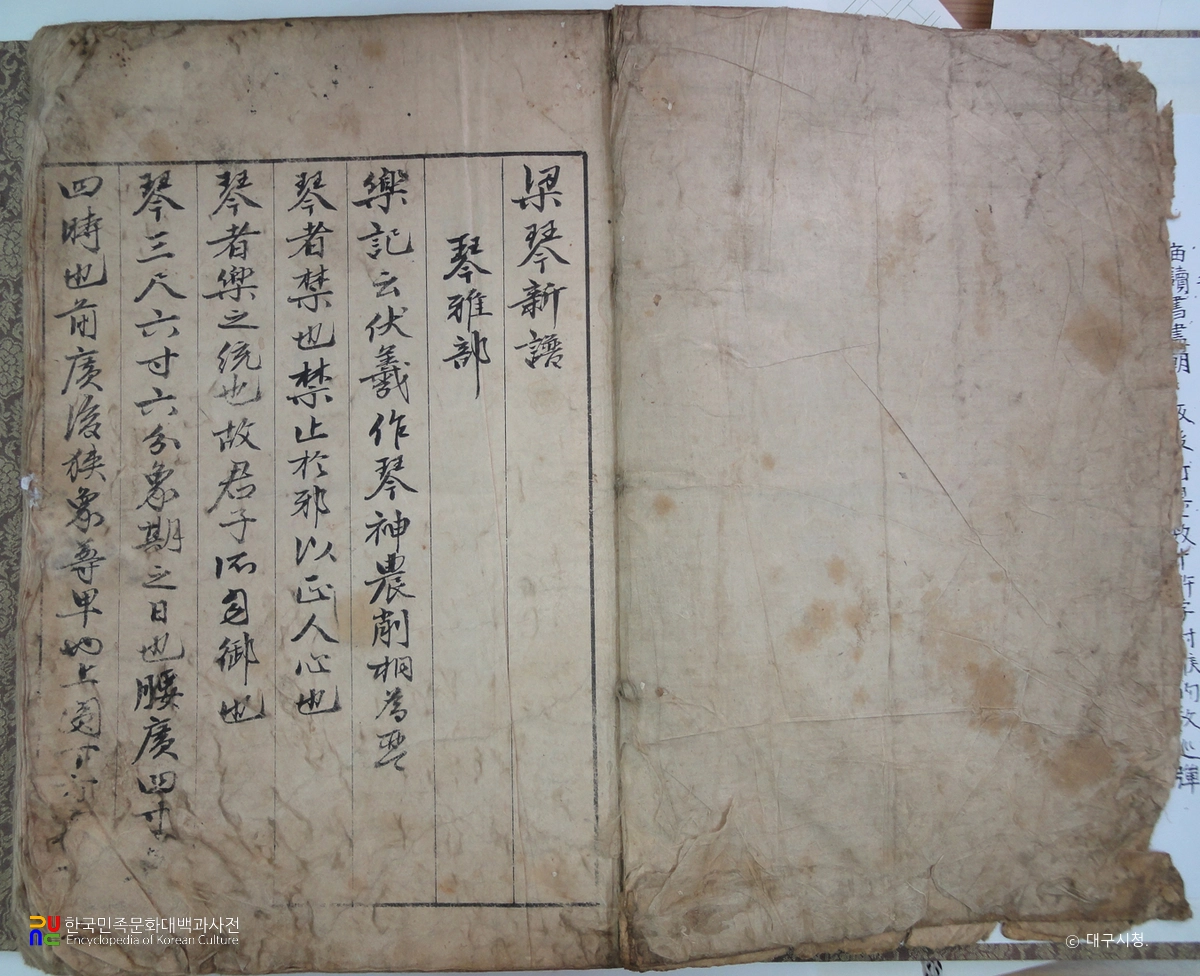 梁琴新譜
琴雅部
樂記云伏羲作琴神農削桐為琴
琴者禁也禁止於邪以正人心也
琴者樂之統也故君子所自御也
琴三尺六寸六分象期之日也腰廣四寸
四時也前廣後狹象尊卑也上圓
한국민족문화대백과사전
Encyclopedia of Korean Culture
© 대구시청.